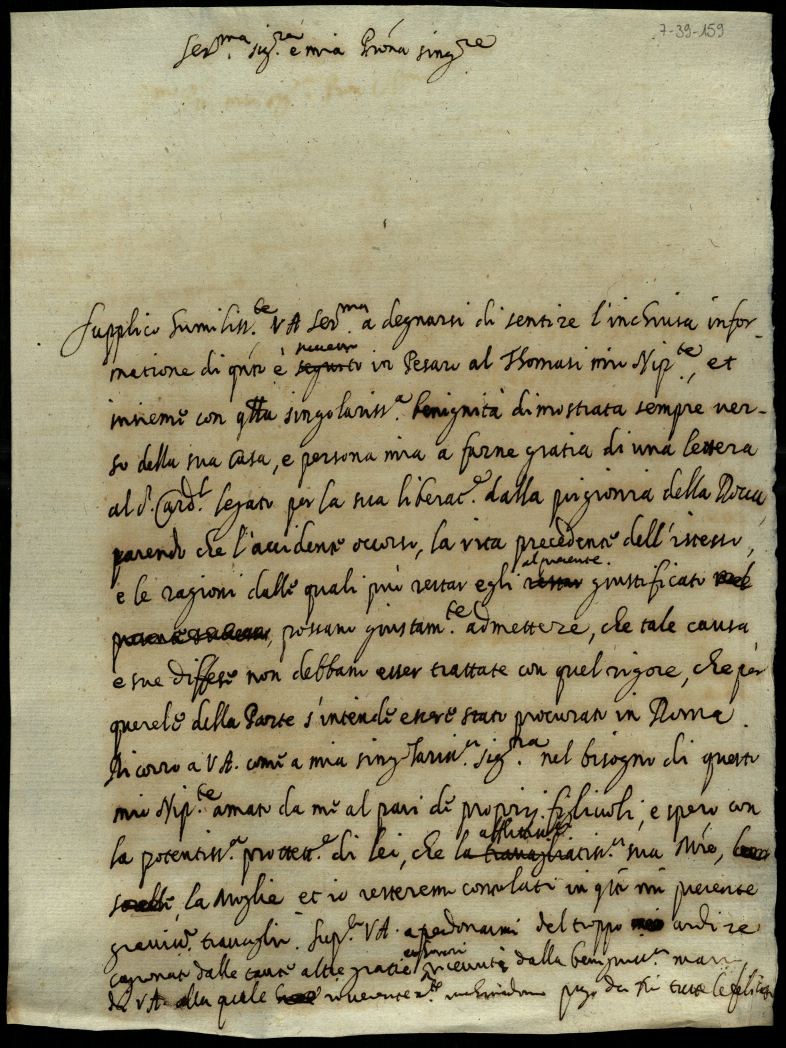 7-39-159
Ser.ma Sig.ra e mia Pron̄a sing.re
Supplico humiliss.te VA Ser.ma a degnarsi di sentire l'inchiusa infor-
matione di qn̄to è successo segurto in Pesaro al Thomasi mio Nip.te, et
insieme con qlla singolariss.a benignità dimostrata sempre ver-
so della sua Casa, e persona mia a farne gratia di una lettera
al S.r Card.l legato per la sua liberac.e dalla prigionia della Rocca,
parendo che l'accidente occorso, la vita precedente dell'istesso,
e le ragioni dalle quali può restar egli al presente restar giustificato
possano giustam.te admettere, che tale causa
e sue diffese non debbano esser trattate con quel rigore, che per
querele della Parte s'intende essere stato procurato in Roma.
Ricorro a VA. come a mia singolariss.a Sig.ra nel bisogno di questo
mio Nip.te amato da me al pari de proprij figlivoli, e spero con
la potentiss.a protett.e di lei, che la afflittiss.a travagliatiss.a sua M̄re,
la Moglie et io resteremo consolati in q̄sto mio presente
graviss.o travaglio. Supp.co VA. a perdonarmi del troppo ardire
cagionato dalle tante altre gratie ricevute dalla benigniss.a mano
di VA. alla quale reverentem.te inchinandomi prego da Dio tutte le felicità